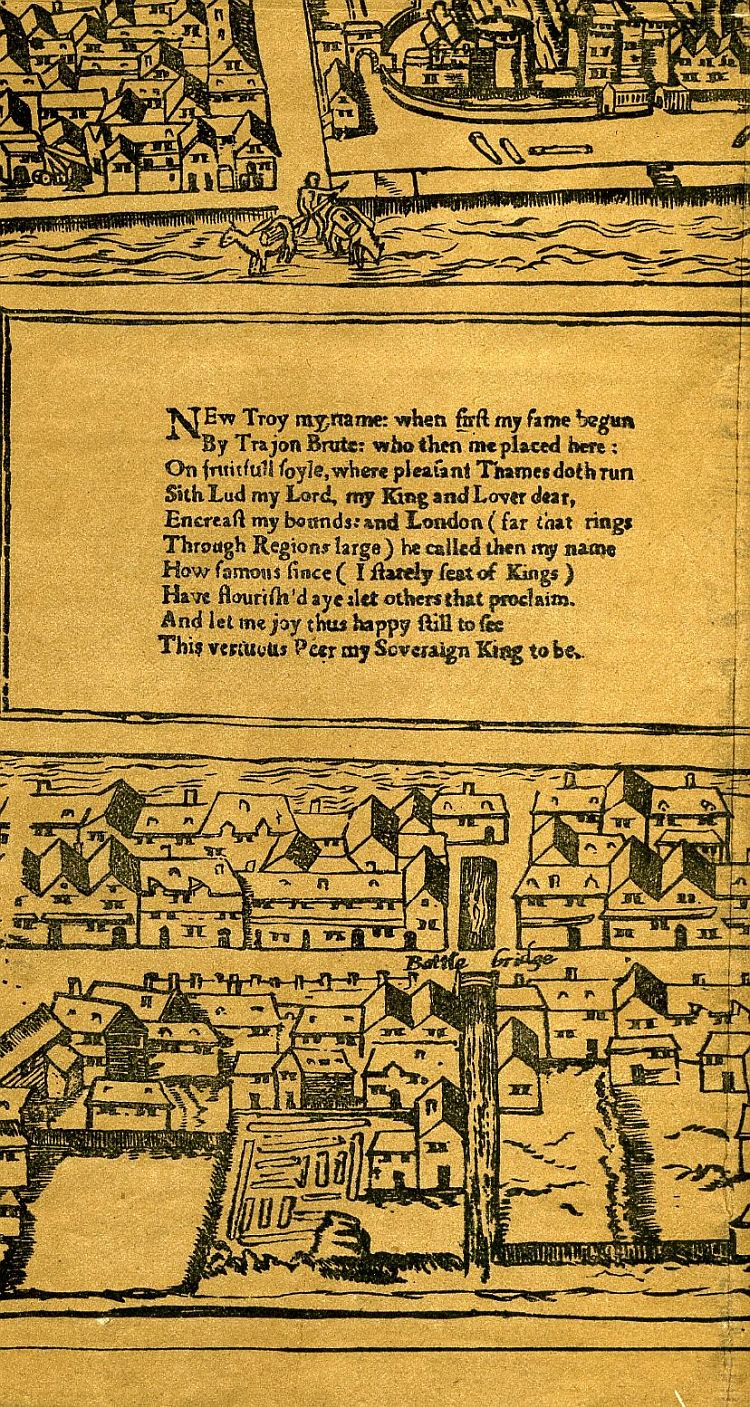 NEw Troy my name: when first my fame begun
By Trajon Brute: who then me placed here:
On fruitfull soyle, where pleasant Thames doth run
Sith Lud my Lord, my King and Lover dear,
Encreast my bounds: and London (far that rings
Through Regions large) he called then my name
How famous since (I stately seat of Kings)
Have flourish'd aye: let others that proclaim.
And let me joy thus happy still to see
This vertuous Peer my Soveraign King to be.
Battle bridge